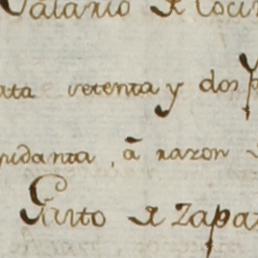 Salario de Cocin
ata setenta y dos p
pidanta, á razon
Gasto de Zapa